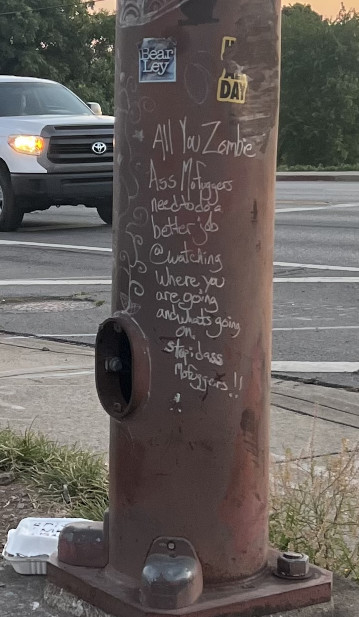 Bear
Ley
DAY
All You Zombe
Ass Mofuggers
need to do a
better job
@watching
where you
are going
and whats going
on,
stupidass
Mofuggers!!